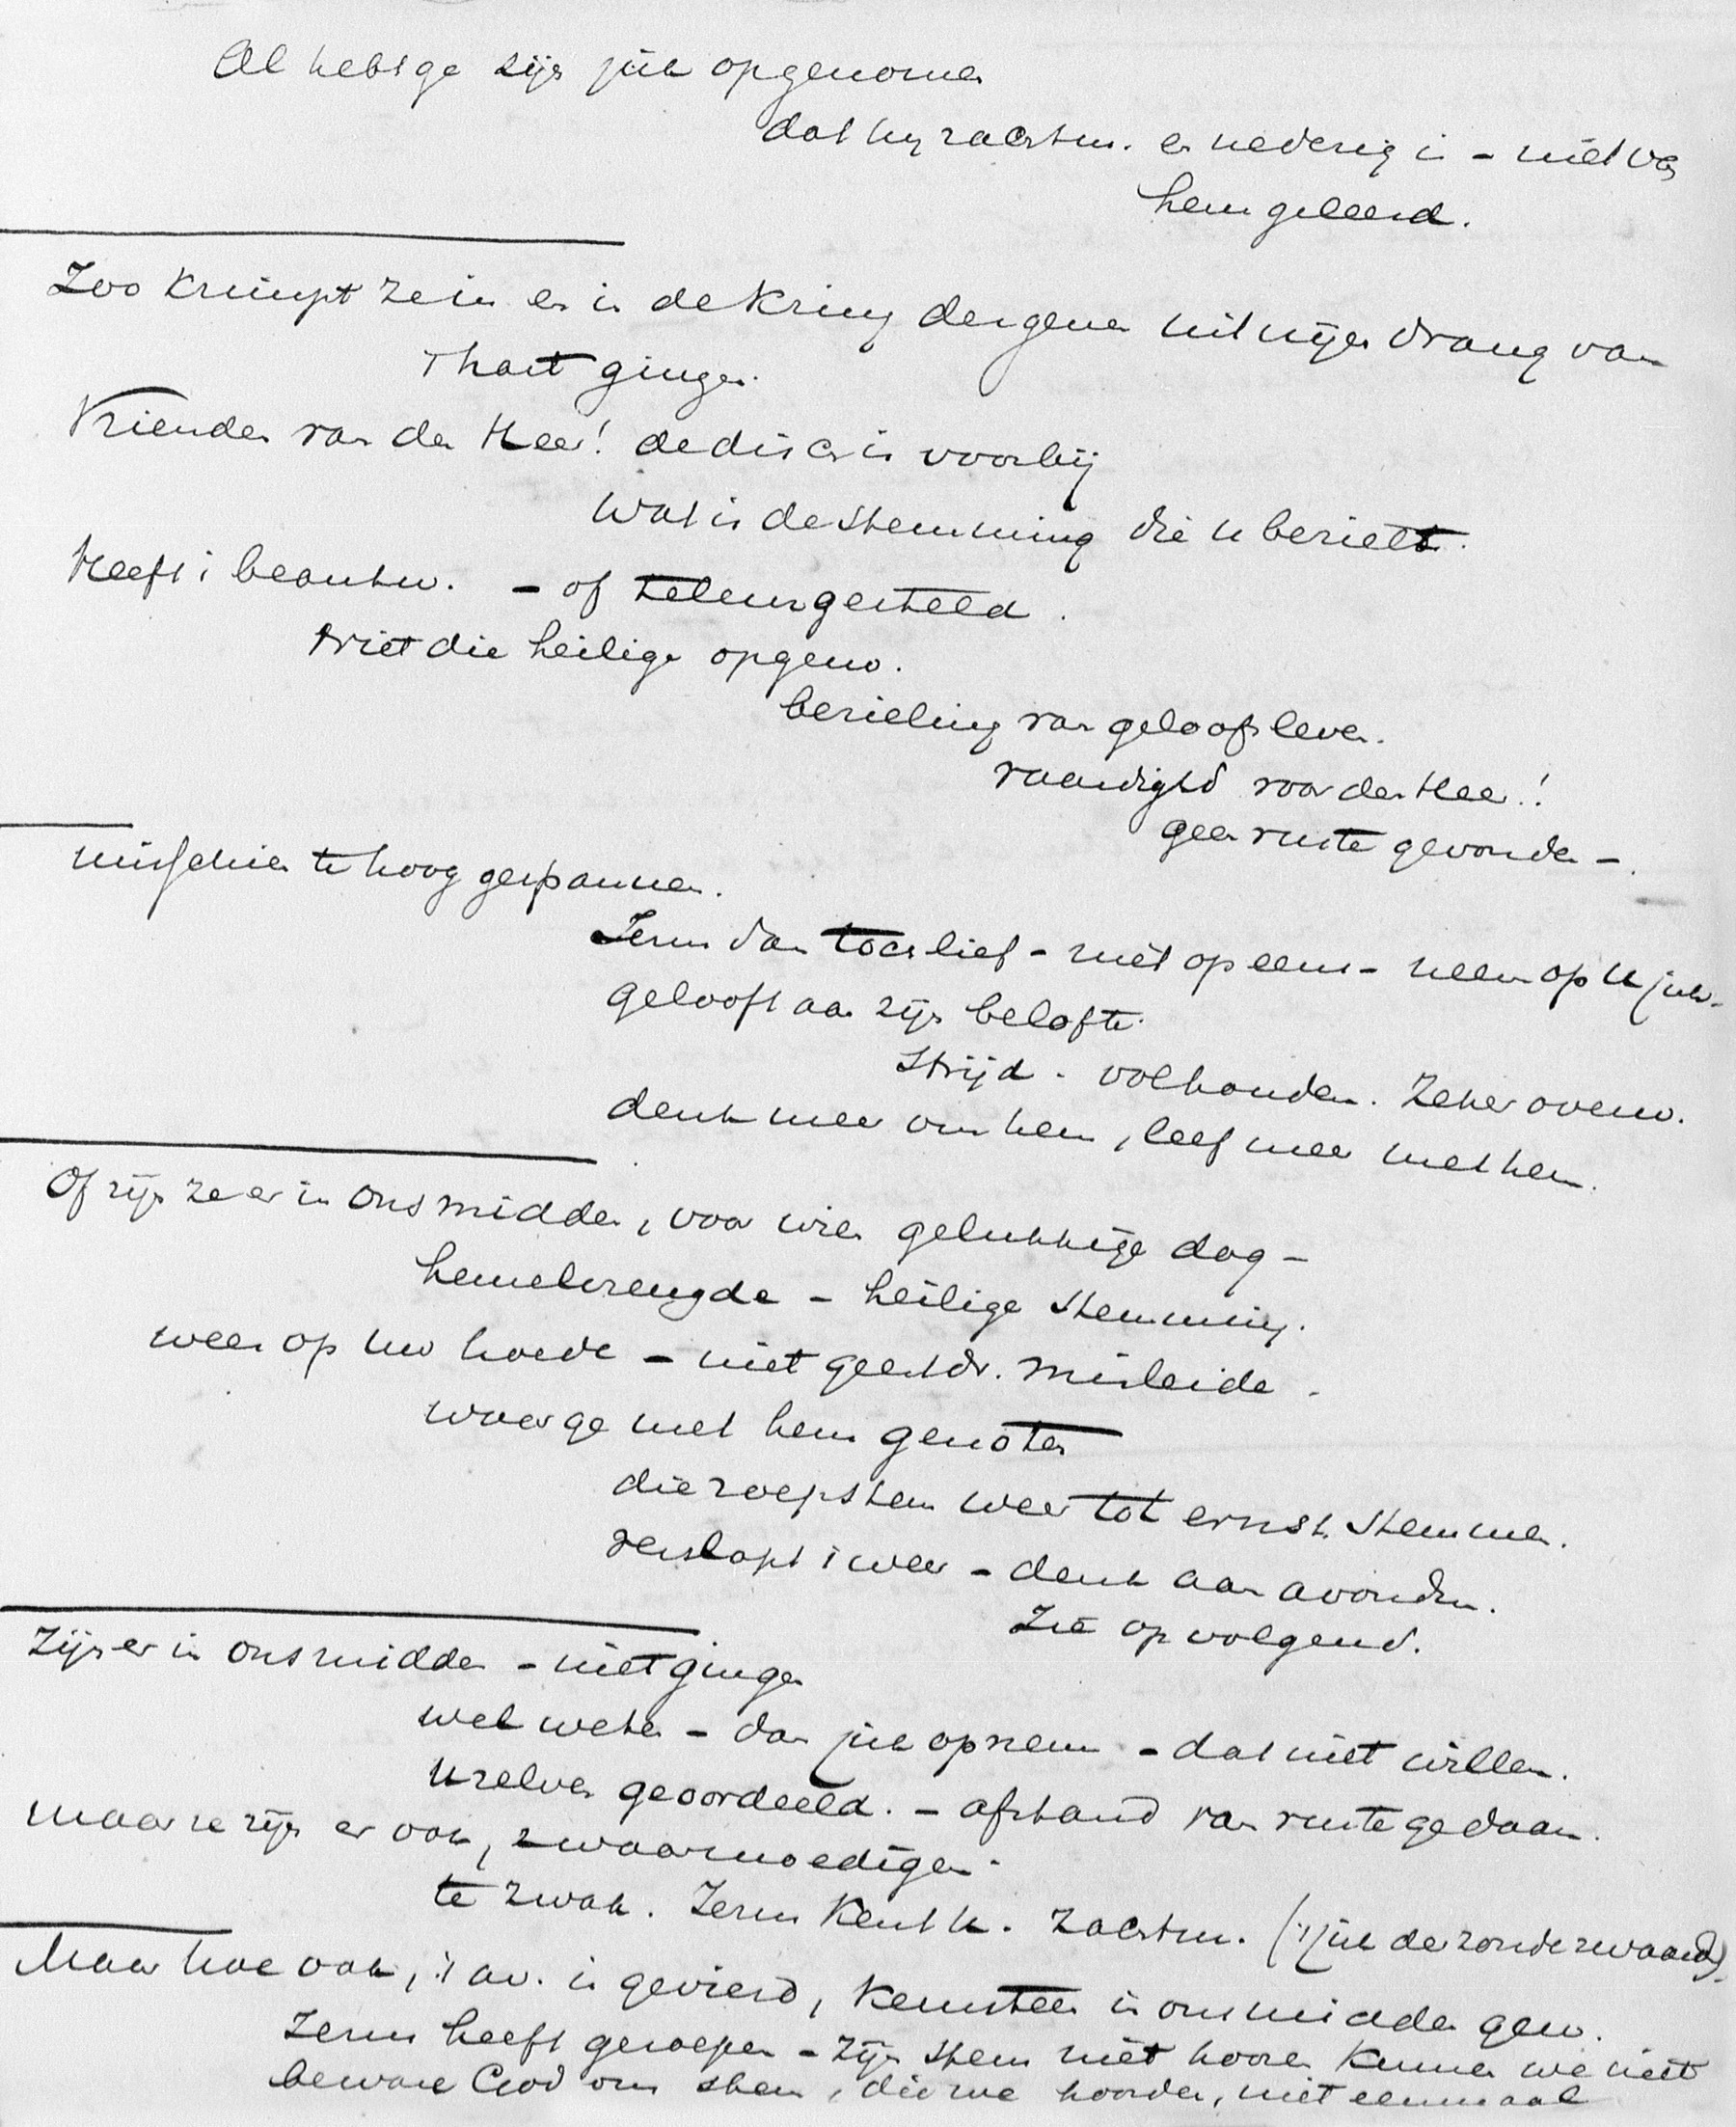 Al hebt ge zijn juk opgenomen
dat hij zachtm. en nederig is – niet van
hem geleerd.
Zoo krimpt ze in en is de kring dergenen uit vrijen drang van
't hart gingen.
Vrienden van den Heer! de disch is voorbij
Wat is de stemming die u bezielt.
Heeft 't beantw. – of teleurgesteld.
Niet die heilige opgew.
bezieling van geloofsleven.
vaardighd voor den Heer!
geen ruste gevonden –.
misschien te hoog gespannen.
Jezus dan toch lief – niet op eens – neem op u juk.
gelooft aan zijn belofte.
Strijd. volhouden. Zeker overw.
denk meer om hem, leef meer met hem.
Of zijn ze er in ons midden, voor wien gelukkige dag –
hemelvreugde – heilige stemming.
wees op uw hoede – niet geestdr. misleide.
waar ge met hem genoten
die roepstem weer tot ernst stemmen.
verslapt 't weer – denk aan avonden.
Zie op volgend.
Zijn er in ons midden – niet gingen
wel weten – dan juk opnem – dat niet willen.
Uzelven geoordeeld. – afstand van ruste gedaan.
Maar ze zijn er ook, zwaarmoedigen.
te zwak. Jezus kent u. zachtm. ('t juk der zonde zwaard).
Maar hoe ook, 't av. is gevierd, kenmteen is ons midden gew.
Jezus heeft geroepen – zijn stem niet hooren kunnen we niet
beware God ons stem, die we hoorden, niet eenmaal